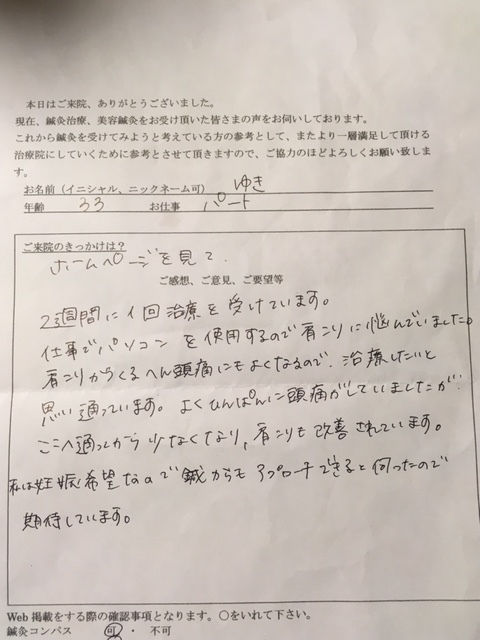 本日はご来院、ありがとうございました。
現在、鍼灸治療、美容鍼灸をお受け頂いた皆さまの声をお伺いしております。
これから鍼灸を受けてみようと考えている方の参考として、またより一層満足して頂ける
治療院にしていくために参考とさせて頂きますので、ご協力のほどよろしくお願い致しま
す。
お名前（イニシャル、ニックネーム可） ゆき
年齢 33 お仕事 パート
ご来院のきっかけは？
ホームページを見て.
ご感想、ご意見、ご要望等
2週間に1回治療を受けています。
仕事でパソコンを使用するので肩こりに悩んでいました。
肩こりからくるへん頭痛にもよくなるので、治療したいと
思い通っています。よくひんぱんに頭痛がしていましたが
ここへ通ってから少なくなり、肩こりも改善されています。
私は妊娠希望なので鍼からもアプローチできると伺ったので
期待しています。
Web掲載をする際の確認事項となります。〇をいれて下さい。
鍼灸コンパス 可 ・ 不可